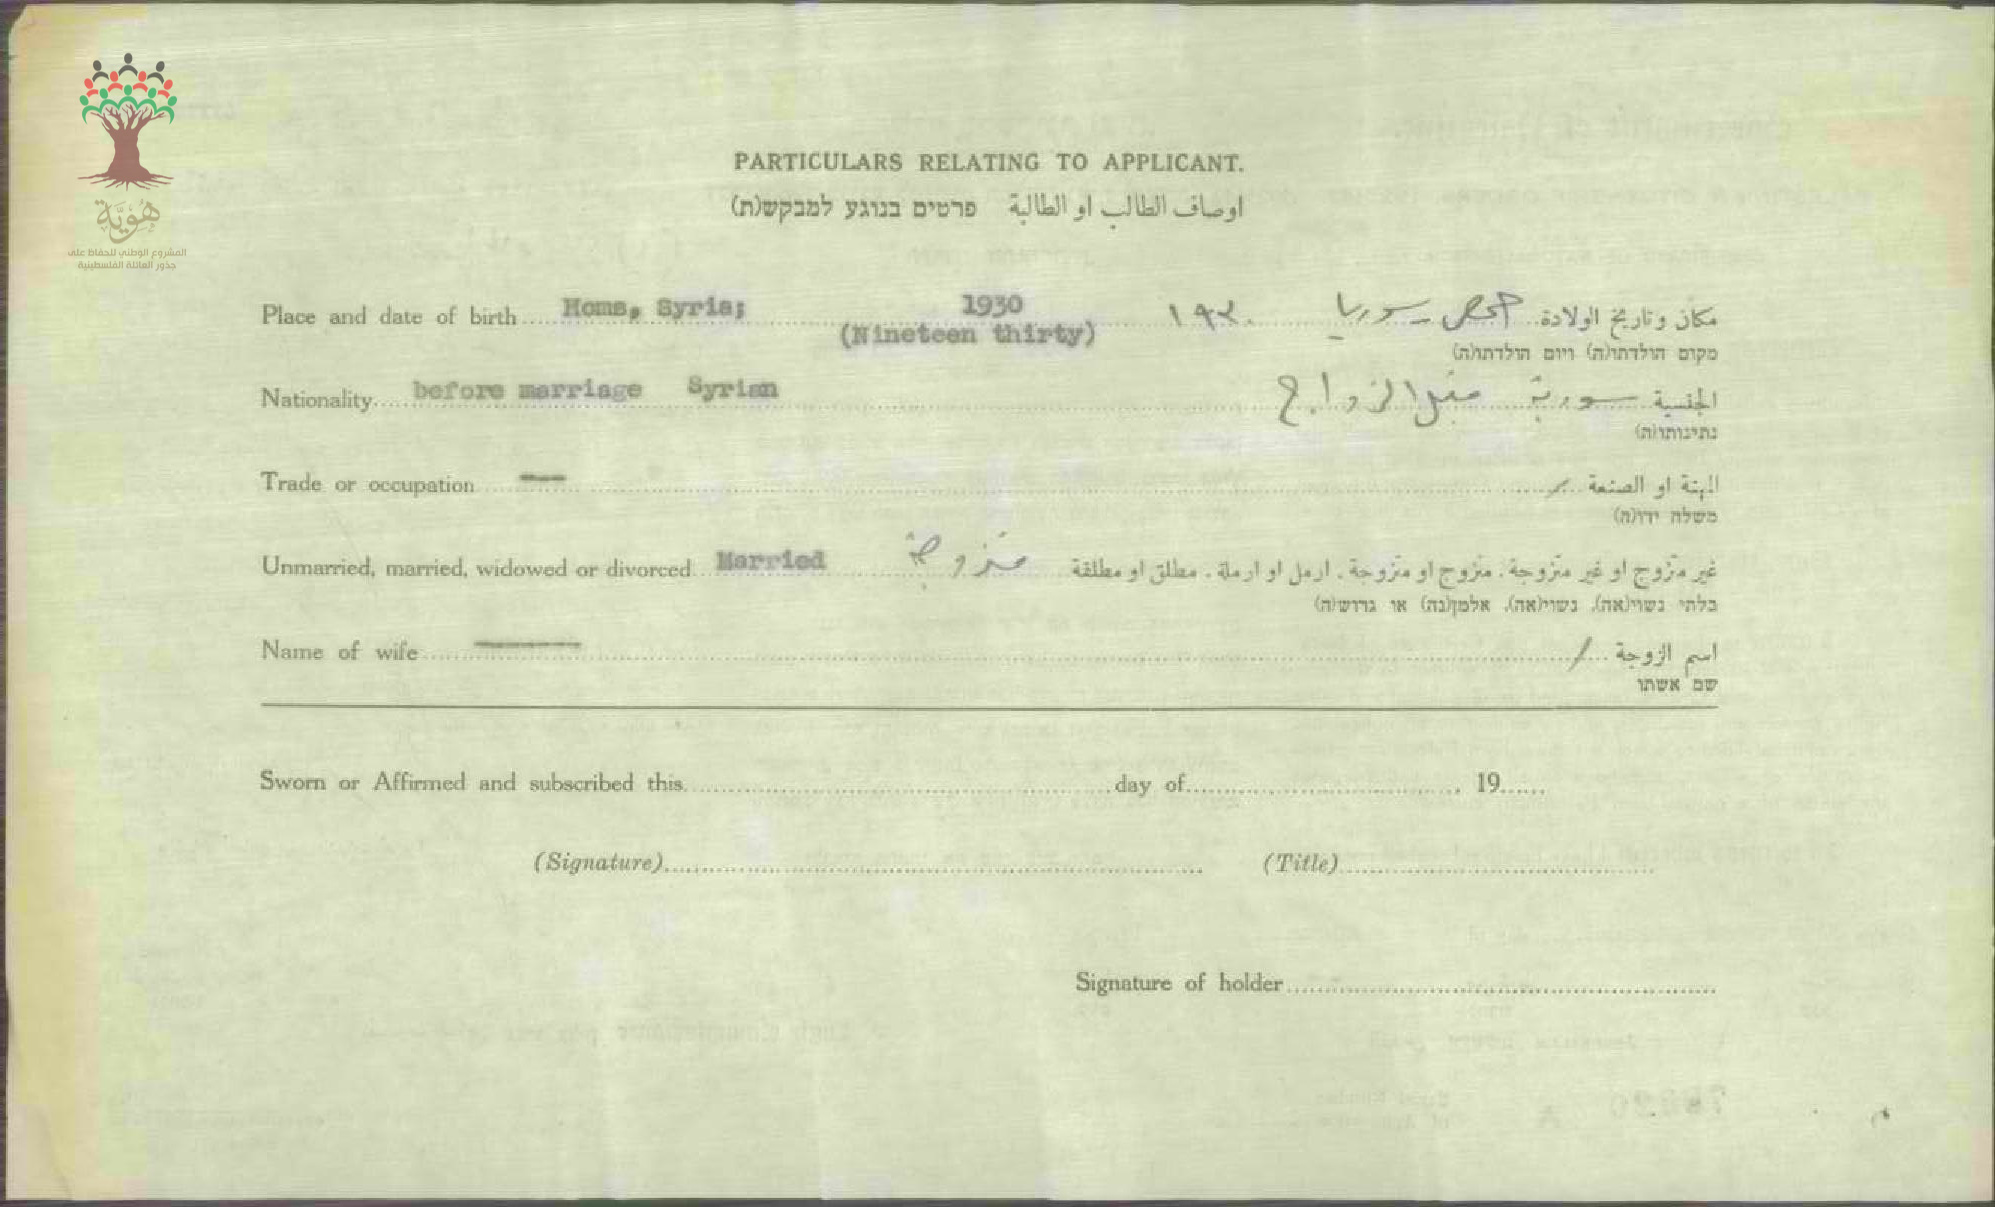 هُوِيَّة
المشروع الوطني للحفاظ على
جذور العائلة الفلسطينية
PARTICULARS RELATING TO APPLICANT.
اوصاف الطالب او الطالبة פרטים בנוגע למבקש(ת)
Place and date of birth Homs, Syria; 1930 ١٩٣٠ حمص سوريا مكان وتاريخ الولادة
(Nineteen thirty)
מקום הולדתו(ה) ויום הולדתו(ה)
Nationality before marriage Syrian سورية قبل الزواج الجنسية
נתינותו(ה)
Trade or occupation — المهنة او الصنعة
משלח ידו(ה)
Unmarried, married, widowed or divorced Married متزوجة غير متزوج او غير متزوجة. متزوج او متزوجة. ارمل او ارملة. مطلق او مطلقة
בלתי נשוי(אה), נשוי(אה), אלמן(נה) או גרוש(ה)
Name of wife — / اسم الزوجة
שם אשתו
Sworn or Affirmed and subscribed this day of , 19
(Signature) (Title)
Signature of holder